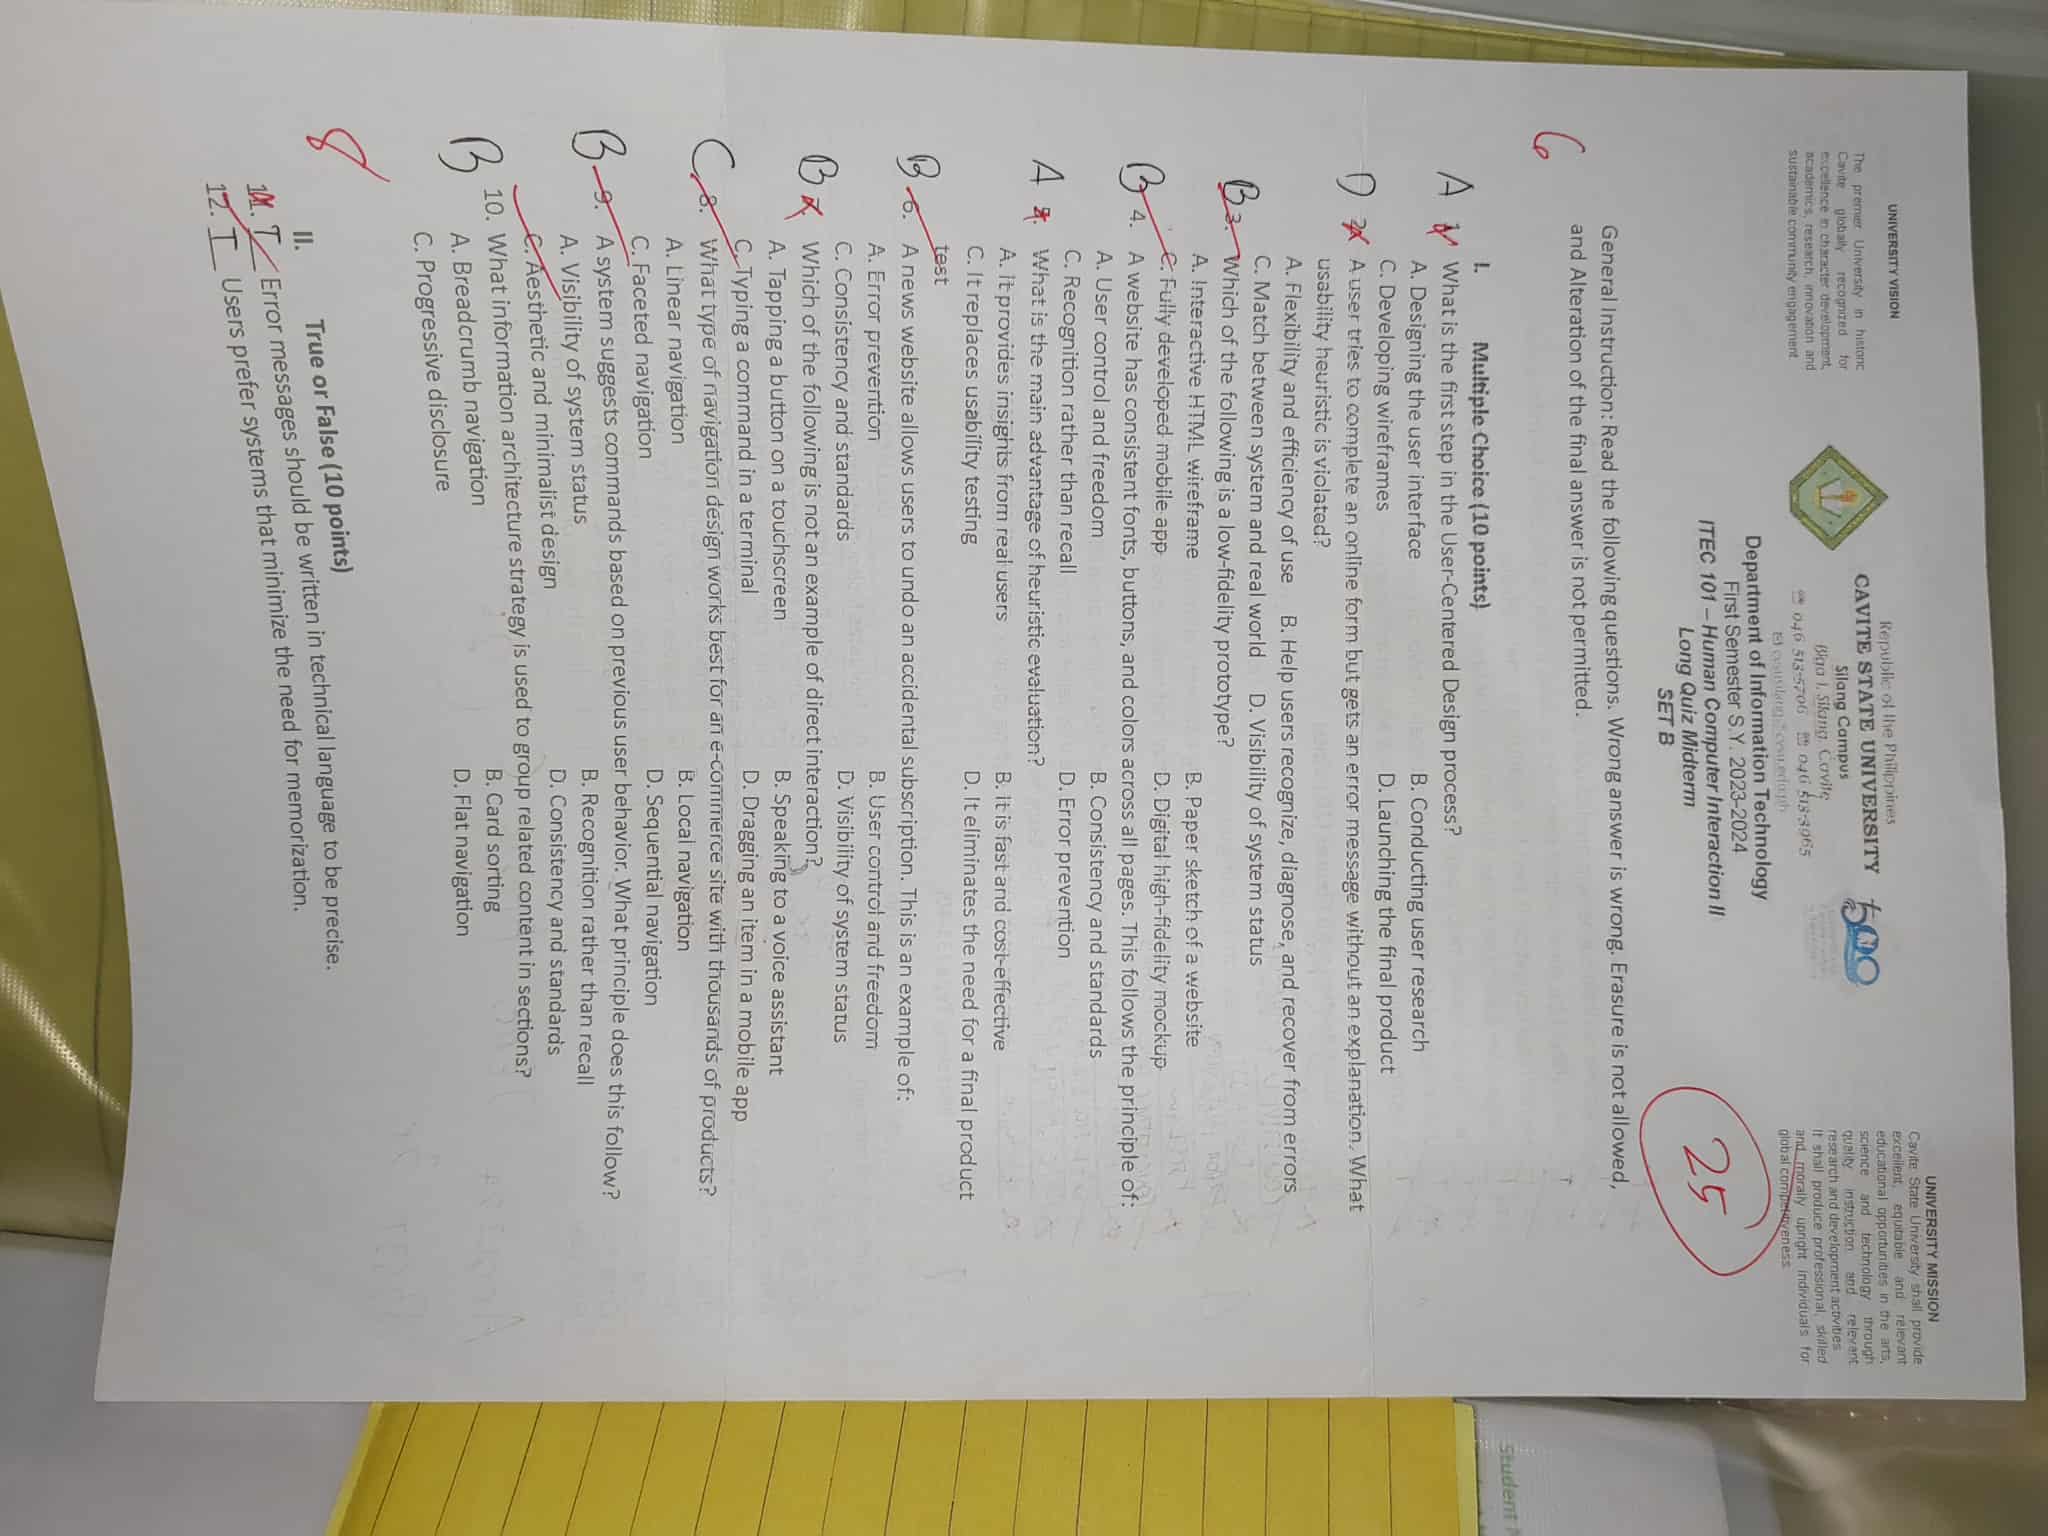 UNIVERSITY VISION
The premier University in historic
Cavite globally recognized for
excellence in character development,
academics, research, innovation and
sustainable community engagement.
Republic of the Philippines
CAVITE STATE UNIVERSITY
Silang Campus
Biga I, Silang, Cavite
046 513-5706 046 513-3965
cvsusilang@cvsu.edu.ph
500
UNIVERSITY MISSION
Cavite State University shall provide
excellent, equitable and relevant
educational opportunities in the arts,
science and technology through
quality instruction and relevant
research and development activities
It shall produce professional, skilled
and morally upright individuals for
global competitiveness.
Department of Information Technology
First Semester S.Y. 2023-2024
ITEC 101 – Human Computer Interaction II
Long Quiz Midterm
SET B
25
General Instruction: Read the following questions. Wrong answer is wrong. Erasure is not allowed,
and Alteration of the final answer is not permitted.
6
Student
I. Multiple Choice (10 points)
A 1. What is the first step in the User-Centered Design process?
A. Designing the user interface B. Conducting user research
C. Developing wireframes D. Launching the final product
D 2. A user tries to complete an online form but gets an error message without an explanation. What
usability heuristic is violated?
A. Flexibility and efficiency of use B. Help users recognize, diagnose, and recover from errors
C. Match between system and real world D. Visibility of system status
B 3. Which of the following is a low-fidelity prototype?
A. Interactive HTML wireframe B. Paper sketch of a website
C. Fully developed mobile app D. Digital high-fidelity mockup
B 4. A website has consistent fonts, buttons, and colors across all pages. This follows the principle of:
A. User control and freedom B. Consistency and standards
C. Recognition rather than recall D. Error prevention
A 5. What is the main advantage of heuristic evaluation?
A. It provides insights from real users B. It is fast and cost-effective
C. It replaces usability testing D. It eliminates the need for a final product
test
B 6. A news website allows users to undo an accidental subscription. This is an example of:
A. Error prevention B. User control and freedom
C. Consistency and standards D. Visibility of system status
B 7. Which of the following is not an example of direct interaction?
A. Tapping a button on a touchscreen B. Speaking to a voice assistant
C. Typing a command in a terminal D. Dragging an item in a mobile app
C 8. What type of navigation design works best for an e-commerce site with thousands of products?
A. Linear navigation B. Local navigation
C. Faceted navigation D. Sequential navigation
B 9. A system suggests commands based on previous user behavior. What principle does this follow?
A. Visibility of system status B. Recognition rather than recall
C. Aesthetic and minimalist design D. Consistency and standards
B 10. What information architecture strategy is used to group related content in sections?
A. Breadcrumb navigation B. Card sorting
C. Progressive disclosure D. Flat navigation
8
II. True or False (10 points)
11. T Error messages should be written in technical language to be precise.
12. T Users prefer systems that minimize the need for memorization.